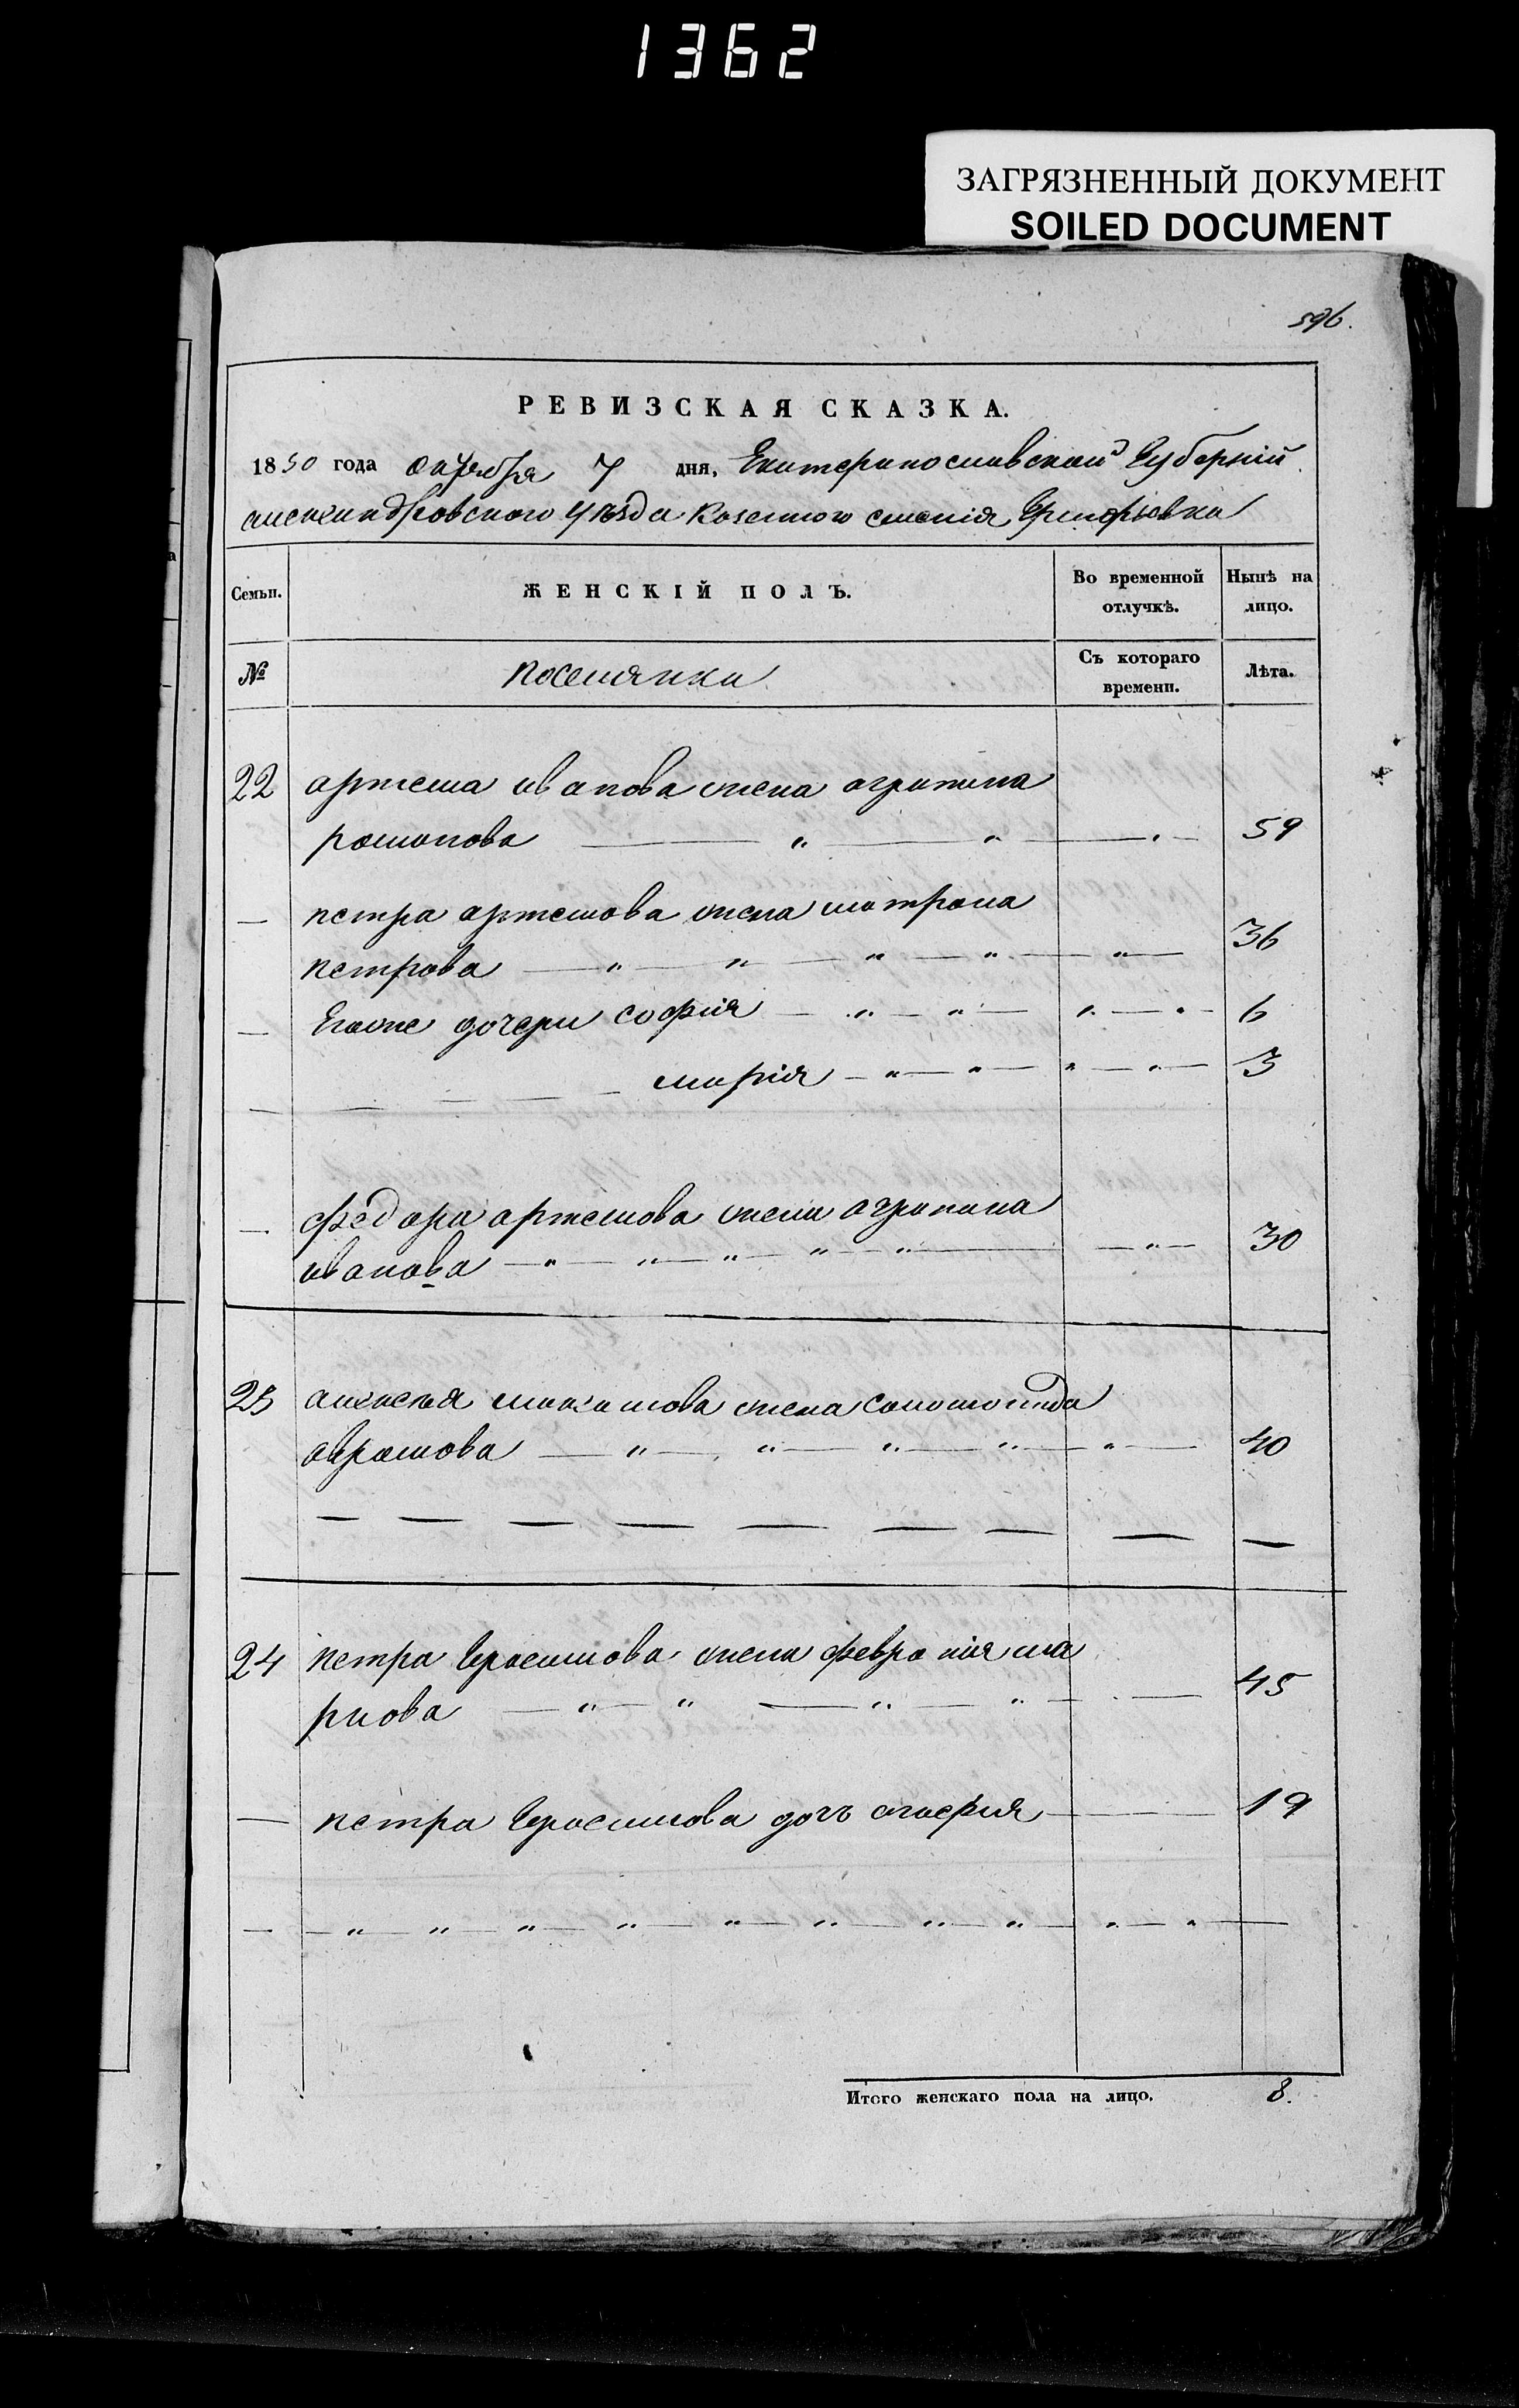 1362
ЗАГРЯЗНЕННЫЙ ДОКУМЕНТ
SOILED DOCUMENT
596.
РЕВИЗСКАЯ СКАЗКА.
1850 года октября 7 дня, Екатеринославской Губерніи
александровского уѣзда Казенного селенія Григорьевки
Семьи.
ЖЕНСКІЙ ПОЛЪ.
Во временной отлучкѣ.
Нынѣ на лицо.
№
поселянки
Съ котораго времени.
Лѣта.
22 артема иванова жена агрипина
романова — „ — „ — „ — 59
— петра артемова жена матрона
петрова — „ — „ — „ — „ — „ — 36
— Егоже дочери софия — „ — „ — „ — „ — 6
— марія — „ — „ — „ — „ — 3
— федора артемова жена агрипина
иванова — „ — „ — „ — „ — „ — „ — 30
23 алексѣя максимова жена соломонида
аврамова — „ — „ — „ — „ — „ — 40
24 петра Герасимова жена феврония ма
ркова — „ — „ — „ — „ — 45
— петра Герасимова дочь агафия — 19
— „ — „ — „ — „ — „ — „ — „ — „ — „ — „ —
Итого женскаго пола на лицо. 8.